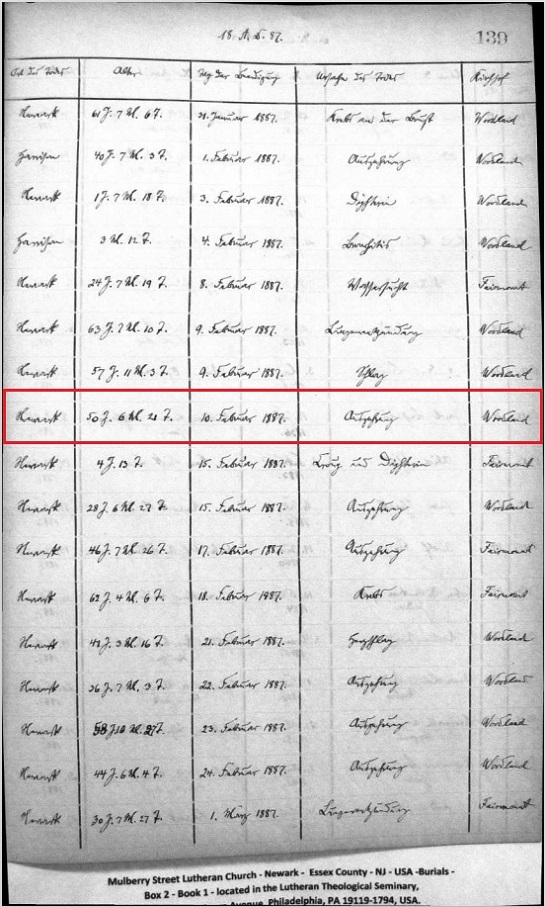 18 A. D. 87. 139
Ort des Todes Alter Tag der Beerdigung Ursache des Todes Kirchhof
Newark 61 J. 7 M. 6 T. 31. Januar 1887. Krebs an der Brust Woodland
Harrison 40 J. 7 M. 3 T. 1. Februar 1887. Auszehrung Woodland
Newark 1 J. 7 M. 18 T. 3. Februar 1887. Diphterie Woodland
Harrison 3 M. 12 T. 4. Februar 1887. Bronchitis Woodland
Newark 24 J. 7 M. 19 T. 8. Februar 1887. Wassersucht Fairmont
Newark 63 J. 7 M. 10 T. 9. Februar 1887. Lungenentzündung Woodland
Newark 57 J. 11 M. 3 T. 9. Februar 1887. Schlag Woodland
Newark 50 J. 6 M. 21 T. 10. Februar 1887. Auszehrung Woodland
Newark 4 J. 13 T. 15. Februar 1887. Croup und Diphterie Fairmont
Newark 28 J. 6 M. 27 T. 15. Februar 1887. Auszehrung Woodland
Newark 46 J. 7 M. 26 T. 17. Februar 1887. Auszehrung Fairmont
Newark 62 J. 4 M. 6 T. 18. Februar 1887. Krebs Fairmont
Newark 42 J. 3 M. 16 T. 21. Februar 1887. Herzschlag Woodland
Newark 36 J. 7 M. 3 T. 22. Februar 1887. Auszehrung Woodland
Newark M. 27 T. 23. Februar 1887. Auszehrung Woodland
Newark 44 J. 6 M. 4 T. 24. Februar 1887. Auszehrung Woodland
Newark 30 J. 7 M. 27 T. 1. März 1887. Lungenentzündung Fairmont
Mulberry Street Lutheran Church - Newark - Essex County - NJ - USA -Burials -
Box 2 - Book 1 - located in the Lutheran Theological Seminary,
Avenue, Philadelphia, PA 19119-1794, USA.